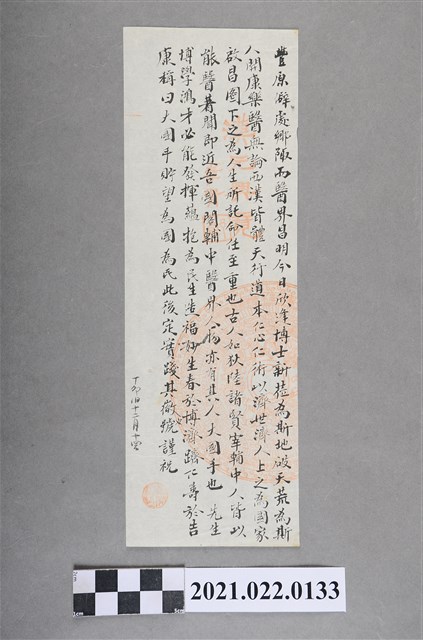 豐原僻處鄉陬而醫界昌明今日欣逢博士新植為斯地破天荒為斯
人開康樂醫無論西漢皆體天行道本仁心仁術以濟世濟人上之為國家
啟昌圖下之為人生所託命任至重也古人如狄陸諸賢宰輔中人皆以
能醫著聞即近吾國閣輔中醫界人物亦有其人大國手也 先生
博學鴻才必能發揮蘊抱為民生造福妙生春於博濟躋仁壽於吉
康稱曰大國手所望為國為民此後定實踐其徽號謹祝
丁 十二月十
2021.022.0133
1cm
5cm